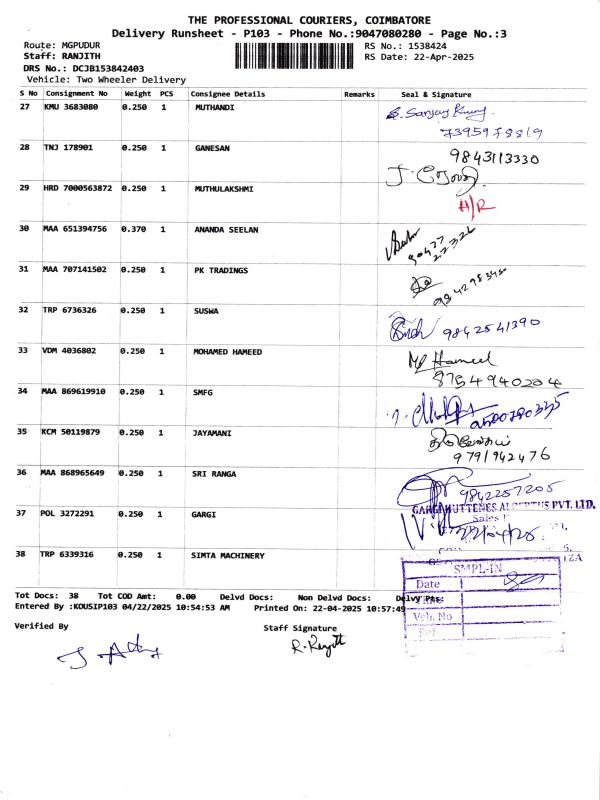 THE PROFESSIONAL COURIERS, COIMBATORE
Delivery Runsheet - P103 - Phone No.:9047080280 - Page No.:3
Route: MGPUDUR RS No.: 1538424
Staff: RANJITH RS Date: 22-Apr-2025
DRS No.: DCJB153842403
Vehicle: Two Wheeler Delivery
S No Consignment No Weight PCS Consignee Details Remarks Seal & Signature
27 KMU 3683080 0.250 1 MUTHANDI
28 TNJ 178901 0.250 1 GANESAN 9843113330
29 HRD 7000563872 0.250 1 MUTHULAKSHMI H/R
30 MAA 651394756 0.370 1 ANANDA SEELAN
31 MAA 707141502 0.250 1 PK TRADINGS
32 TRP 6736326 0.250 1 SUSWA 9842541390
33 VDM 4036802 0.250 1 MOHAMED HAMEED Hameed
8754940204
34 MAA 869619910 0.250 1 SMFG
35 KCM 50119879 0.250 1 JAYAMANI
9791942476
36 MAA 868965649 0.250 1 SRI RANGA 9842257205
37 POL 3272291 0.250 1 GARGI PVT. LTD.
38 TRP 6339316 0.250 1 SIMTA MACHINERY
SMPL-IN
Date
Tot Docs: 38 Tot COD Amt: 0.00 Delvd Docs: Non Delvd Docs: Delvy Pts:
Entered By :KOUSIP103 04/22/2025 10:54:53 AM Printed On: 22-04-2025 10:57:49
Veh. No
Ref
Verified By Staff Signature